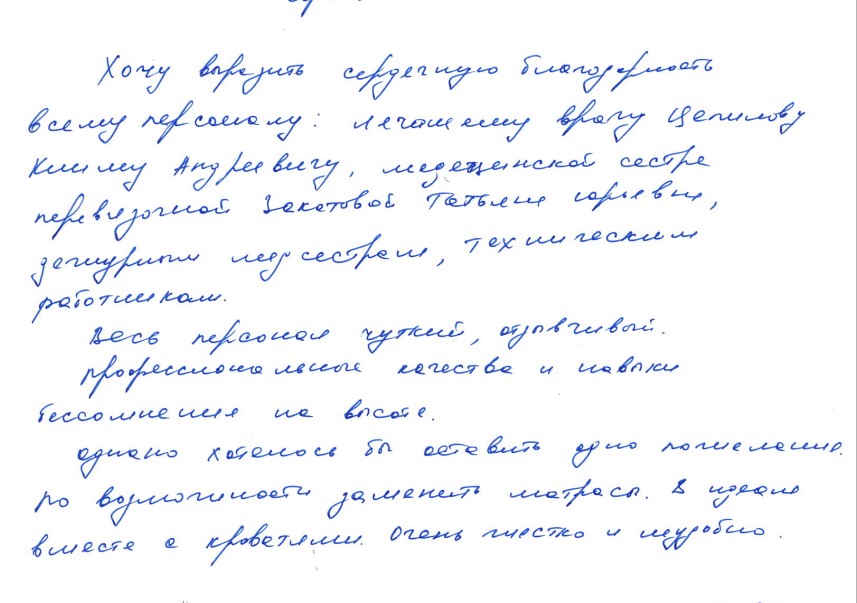 Хочу выразить сердечную благодарность
всему персоналу: лечащему врачу Цепилову
Климу Андреевичу, медецинской сестре
перевязочной Закатовой Татьяне Юрьевне,
дежурным медсестрам, техническим
работникам.
Весь персонал чуткий, отзывчивый.
Профессиональные качества и навыки
бессомнения на высоте.
Однако хотелось бы оставить одно пожелание.
По возможности заменить матрасы. В идеале
вместе с кроватями. Очень жестко и неудобно.